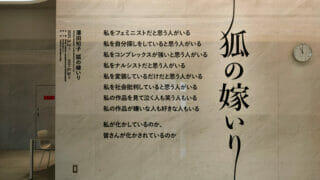 狐の嫁いり
私をフェミニストだと思う人がいる
私を自分探しをしていると思う人がいる
私をコンプレックスが強いと思う人がいる
私をナルシストだと思う人がいる
私を変装しているだけだと思う人がいる
私を社会批判していると思う人がいる
私の作品を見て泣く人も笑う人もいる
私の作品が嫌いな人も好きな人もいる
私が化かしているのか、
皆さんが化かされているのか
澤田知子 狐の嫁いり